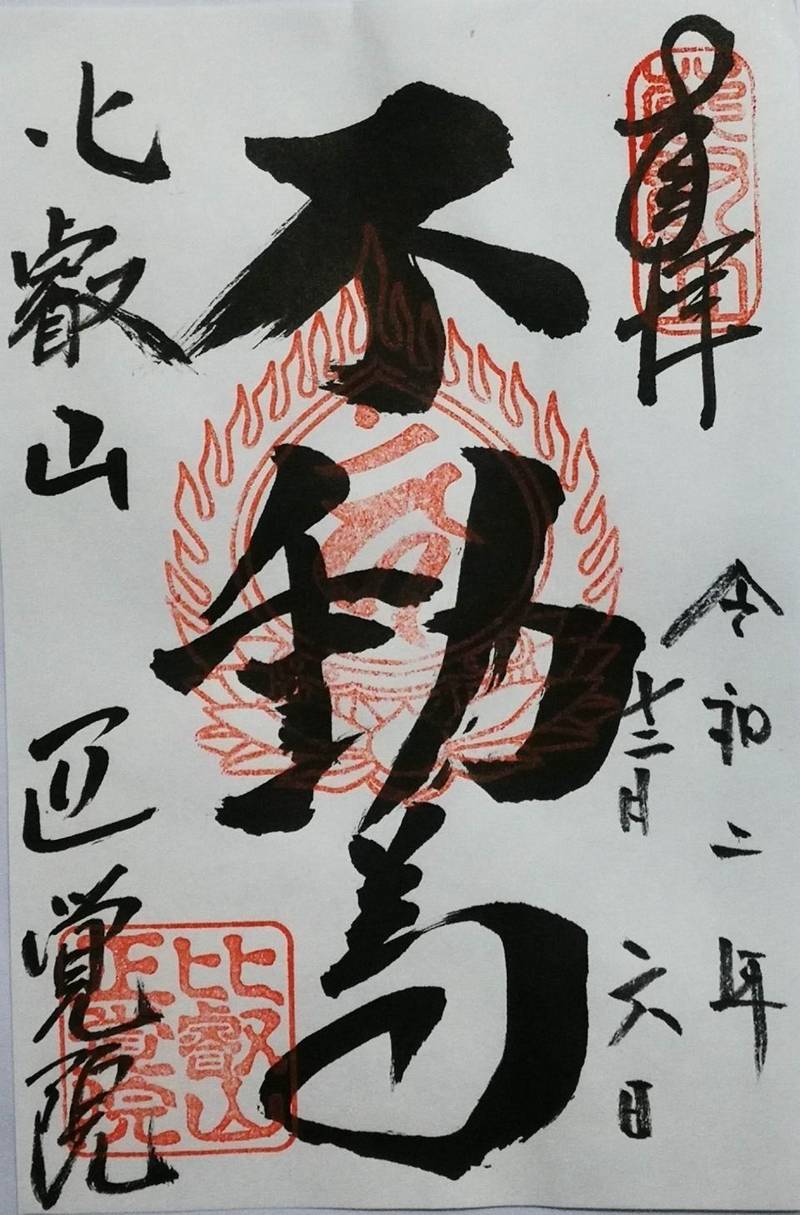 奉拝
令和二年
十二月六日
不動尊
比叡山 正覚院
比叡山
正覺院